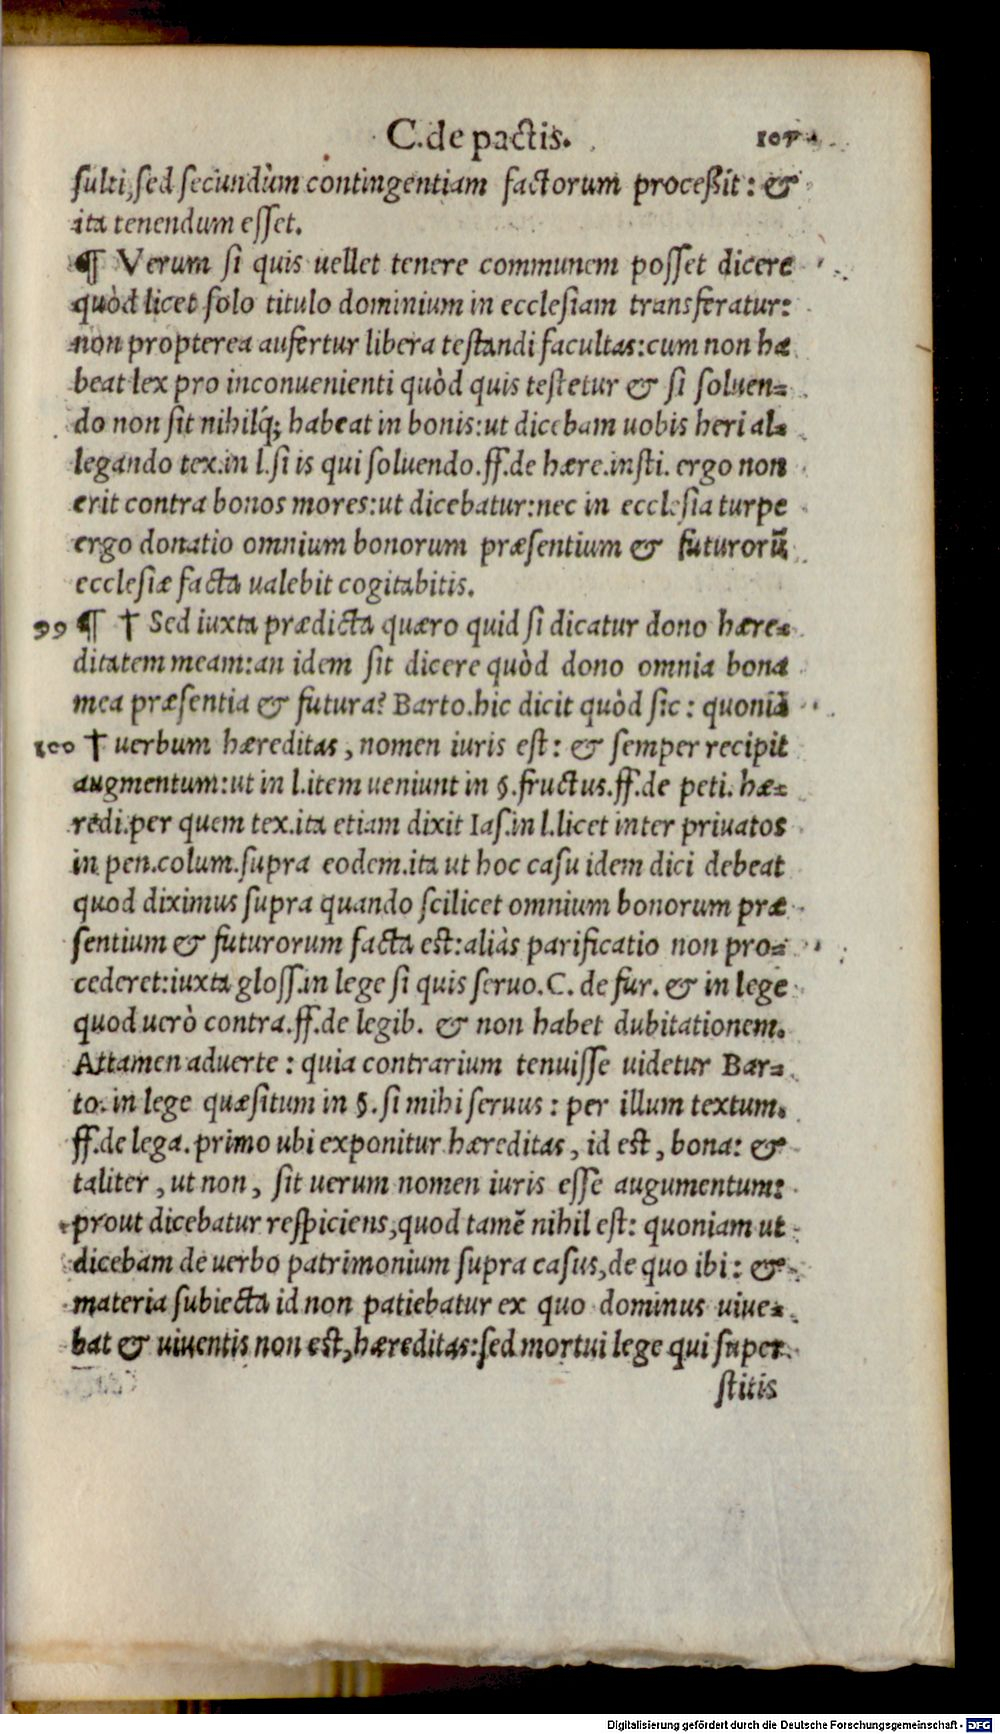 C. de pactis. 105
sulti, sed secundùm contingentiam factorum proceßit: &
ita tenendum esset.
¶ Verum si quis uellet tenere communem posset dicere
quòd licet solo titulo dominium in ecclesiam transferatur:
non propterea aufertur libera testandi facultas: cum non hæ
beat lex pro inconuenienti quòd quis testetur & si soluen=
do non sit nihilq́; habeat in bonis: ut dicebam uobis heri al=
legando tex. in l. si is qui soluendo. ff. de hære. insti. ergo non
erit contra bonos mores: ut dicebatur: nec in ecclesia turpe
ergo donatio omnium bonorum præsentium & futurorū
ecclesiæ facta ualebit cogitabitis.
99 ¶ † Sed iuxta prædicta quæro quid si dicatur dono hære=
ditatem meam: an idem sit dicere quòd dono omnia bona
mea præsentia & futura? Barto. hic dicit quòd sic: quoniã
100 † uerbum hæreditas, nomen iuris est: & semper recipit
augmentum: ut in l. item ueniunt in §. fructus. ff. de peti. hæ=
redi. per quem tex. ita etiam dixit Ias. in l. licet inter priuatos
in pen. colum. supra eodem. ita ut hoc casu idem dici debeat
quod diximus supra quando scilicet omnium bonorum præ
sentium & futurorum facta est: aliàs parificatio non pro=
cederet: iuxta gloss. in lege si quis seruo. C. de fur. & in lege
quod uerò contra. ff. de legib. & non habet dubitationem.
Attamen aduerte: quia contrarium tenuisse uidetur Bar=
to. in lege quæsitum in §. si mihi seruus: per illum textum.
ff. de lega. primo ubi exponitur hæreditas, id est, bona: &
taliter, ut non, sit uerum nomen iuris esse augumentum:
prout dicebatur respiciens, quod tamẽ nihil est: quoniam ut
dicebam de uerbo patrimonium supra casus, de quo ibi: &
materia subiecta id non patiebatur ex quo dominus uiue=
bat & uiuentis non est, hæreditas: sed mortui lege qui super
stitis
Digitalisierung gefördert durch die Deutsche Forschungsgemeinschaft - DFG